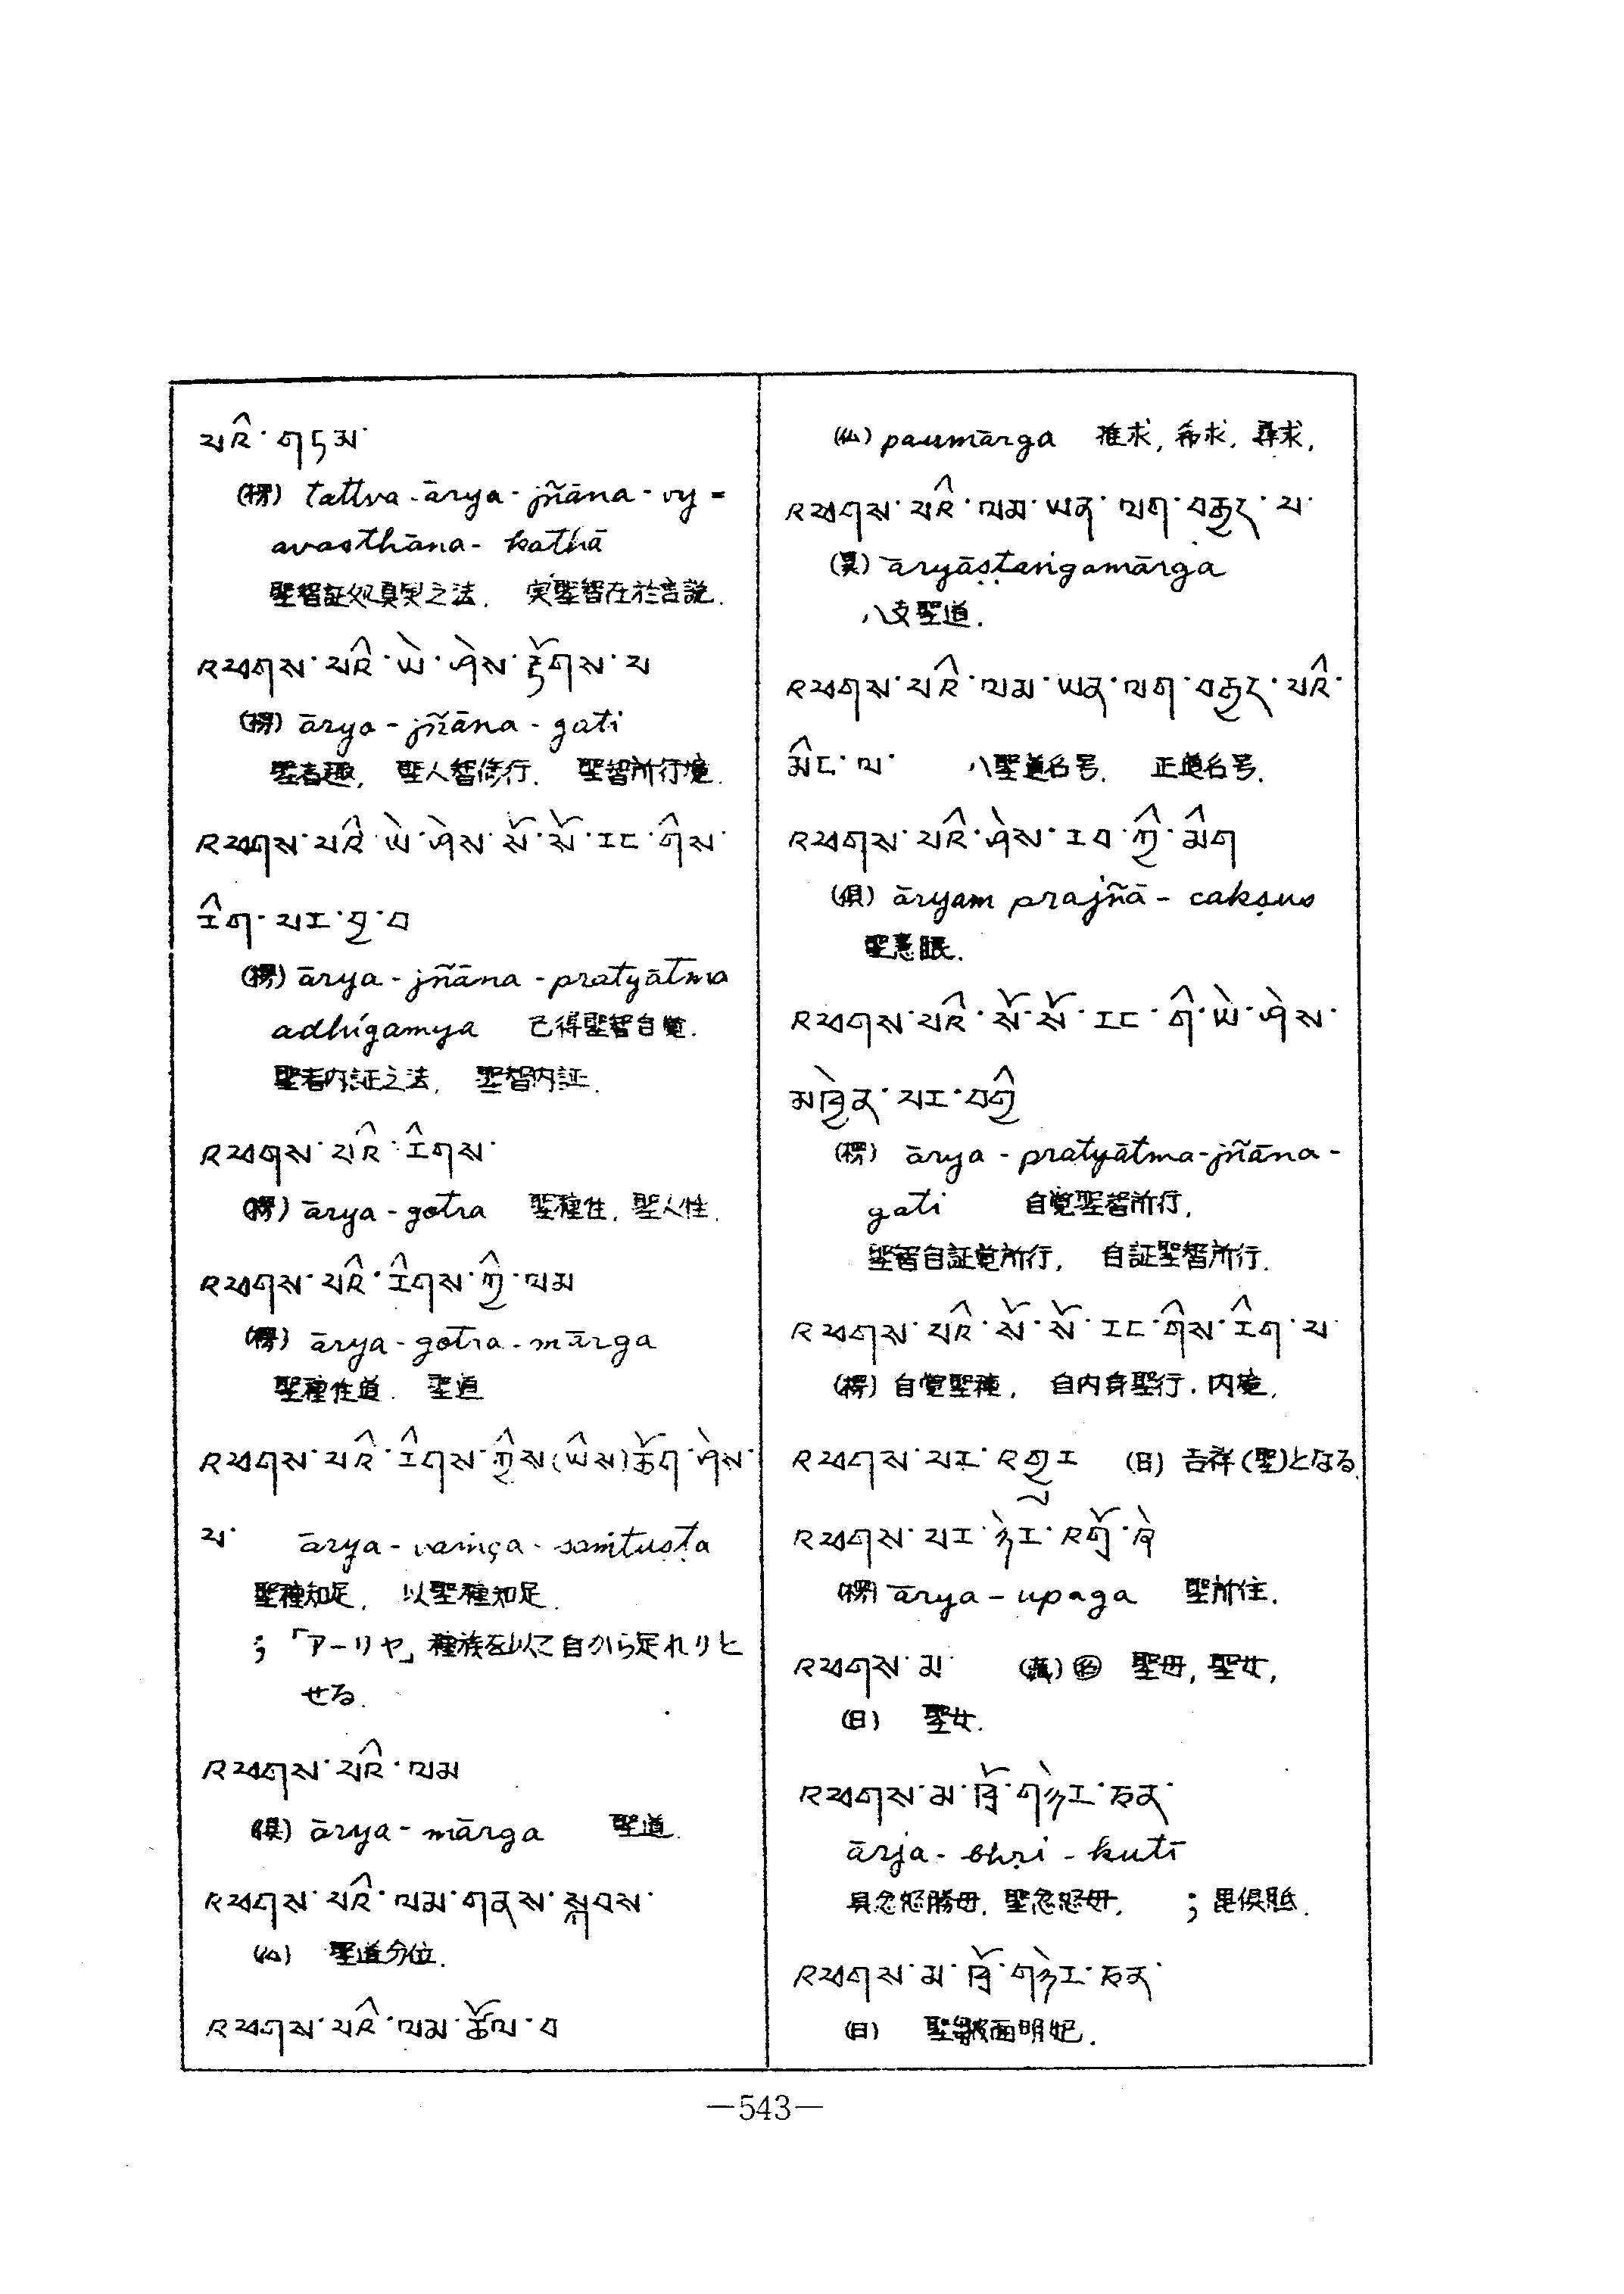 པའི་གཏམ་
(楞) tattva-ārya-jñāna-vy=
avasthāna-kathā
聖智証如真実之法. 実聖智在於言説.
འཕགས་པའི་ཡེ་ཤེས་རྟོགས་པ
(楞) ārya-jñāna-gati
聖者趣, 聖人智修行. 聖智所行境.
འཕགས་པའི་ཡེ་ཤེས་སོ་སོ་རང་གིས་
རིག་པར་བྱ་བ
(楞) ārya-jñāna-pratyātma
adhigamya 已得聖智自覚.
聖者内証之法, 聖智内証.
འཕགས་པའི་རིགས་
(楞) ārya-gotra 聖種性, 聖人性.
འཕགས་པའི་རིགས་ཀྱི་ལམ
(楞) ārya-gotra-mārga
聖種性道. 聖道
འཕགས་པའི་རིགས་ཀྱིས(ཡིས)ཆོག་ཤེས་
པ་ ārya-vaṃça-saṃtuṣṭa
聖種知足, 以聖種知足.
;「アーリヤ」種族を以て自から足れりと
せる.
འཕགས་པའི་ལམ
(倶) ārya-mārga 聖道.
འཕགས་པའི་ལམ་གནས་སྐབས་
(仏) 聖道分位.
འཕགས་པའི་ལམ་ཚོལ་བ
(仏) paumārga 推求, 希求, 尋求,
འཕགས་པའི་ལམ་ཡན་ལག་བརྒྱད་པ་
āryāṣṭaṅgamārga
八支聖道.
འཕགས་པའི་ལམ་ཡན་ལག་བརྒྱད་པའི་
མིང་ལ་ 八聖道名号. 正道名号.
འཕགས་པའི་ཤེས་རབ་ཀྱི་མིག
(倶) āryam prajñā-cakṣus
聖慧眼.
འཕགས་པའི་སོ་སོ་རང་གི་ཡེ་ཤེས་
མཁྱེན་པར་བགྱི
(楞) ārya-pratyātma-jñāna-
gati 自覚聖智所行,
聖智自証覚所行, 自証聖智所行.
འཕགས་པའི་སོ་སོ་རང་གིས་རིག་པ་
(楞) 自覚聖種, 自内身聖行. 内
འཕགས་པར་འགྱུར (日) 吉祥(聖)となる.
འཕགས་པར་ཉེར་འགྲོ་
(楞) ārya-upaga 聖所住.
འཕགས་མ་ (蔵) 聖母, 聖女,
(日) 聖女.
འཕགས་མ་ཁྲོ་གཉེར་ཅན་
ārja-bhṛi-kutī
具忿怒勝母, 聖忿怒母, ; 毘倶胝.
འཕགས་མ་ཁྲོ་གཉེར་ཅན་
(日) 聖皺面明妃.
—543—